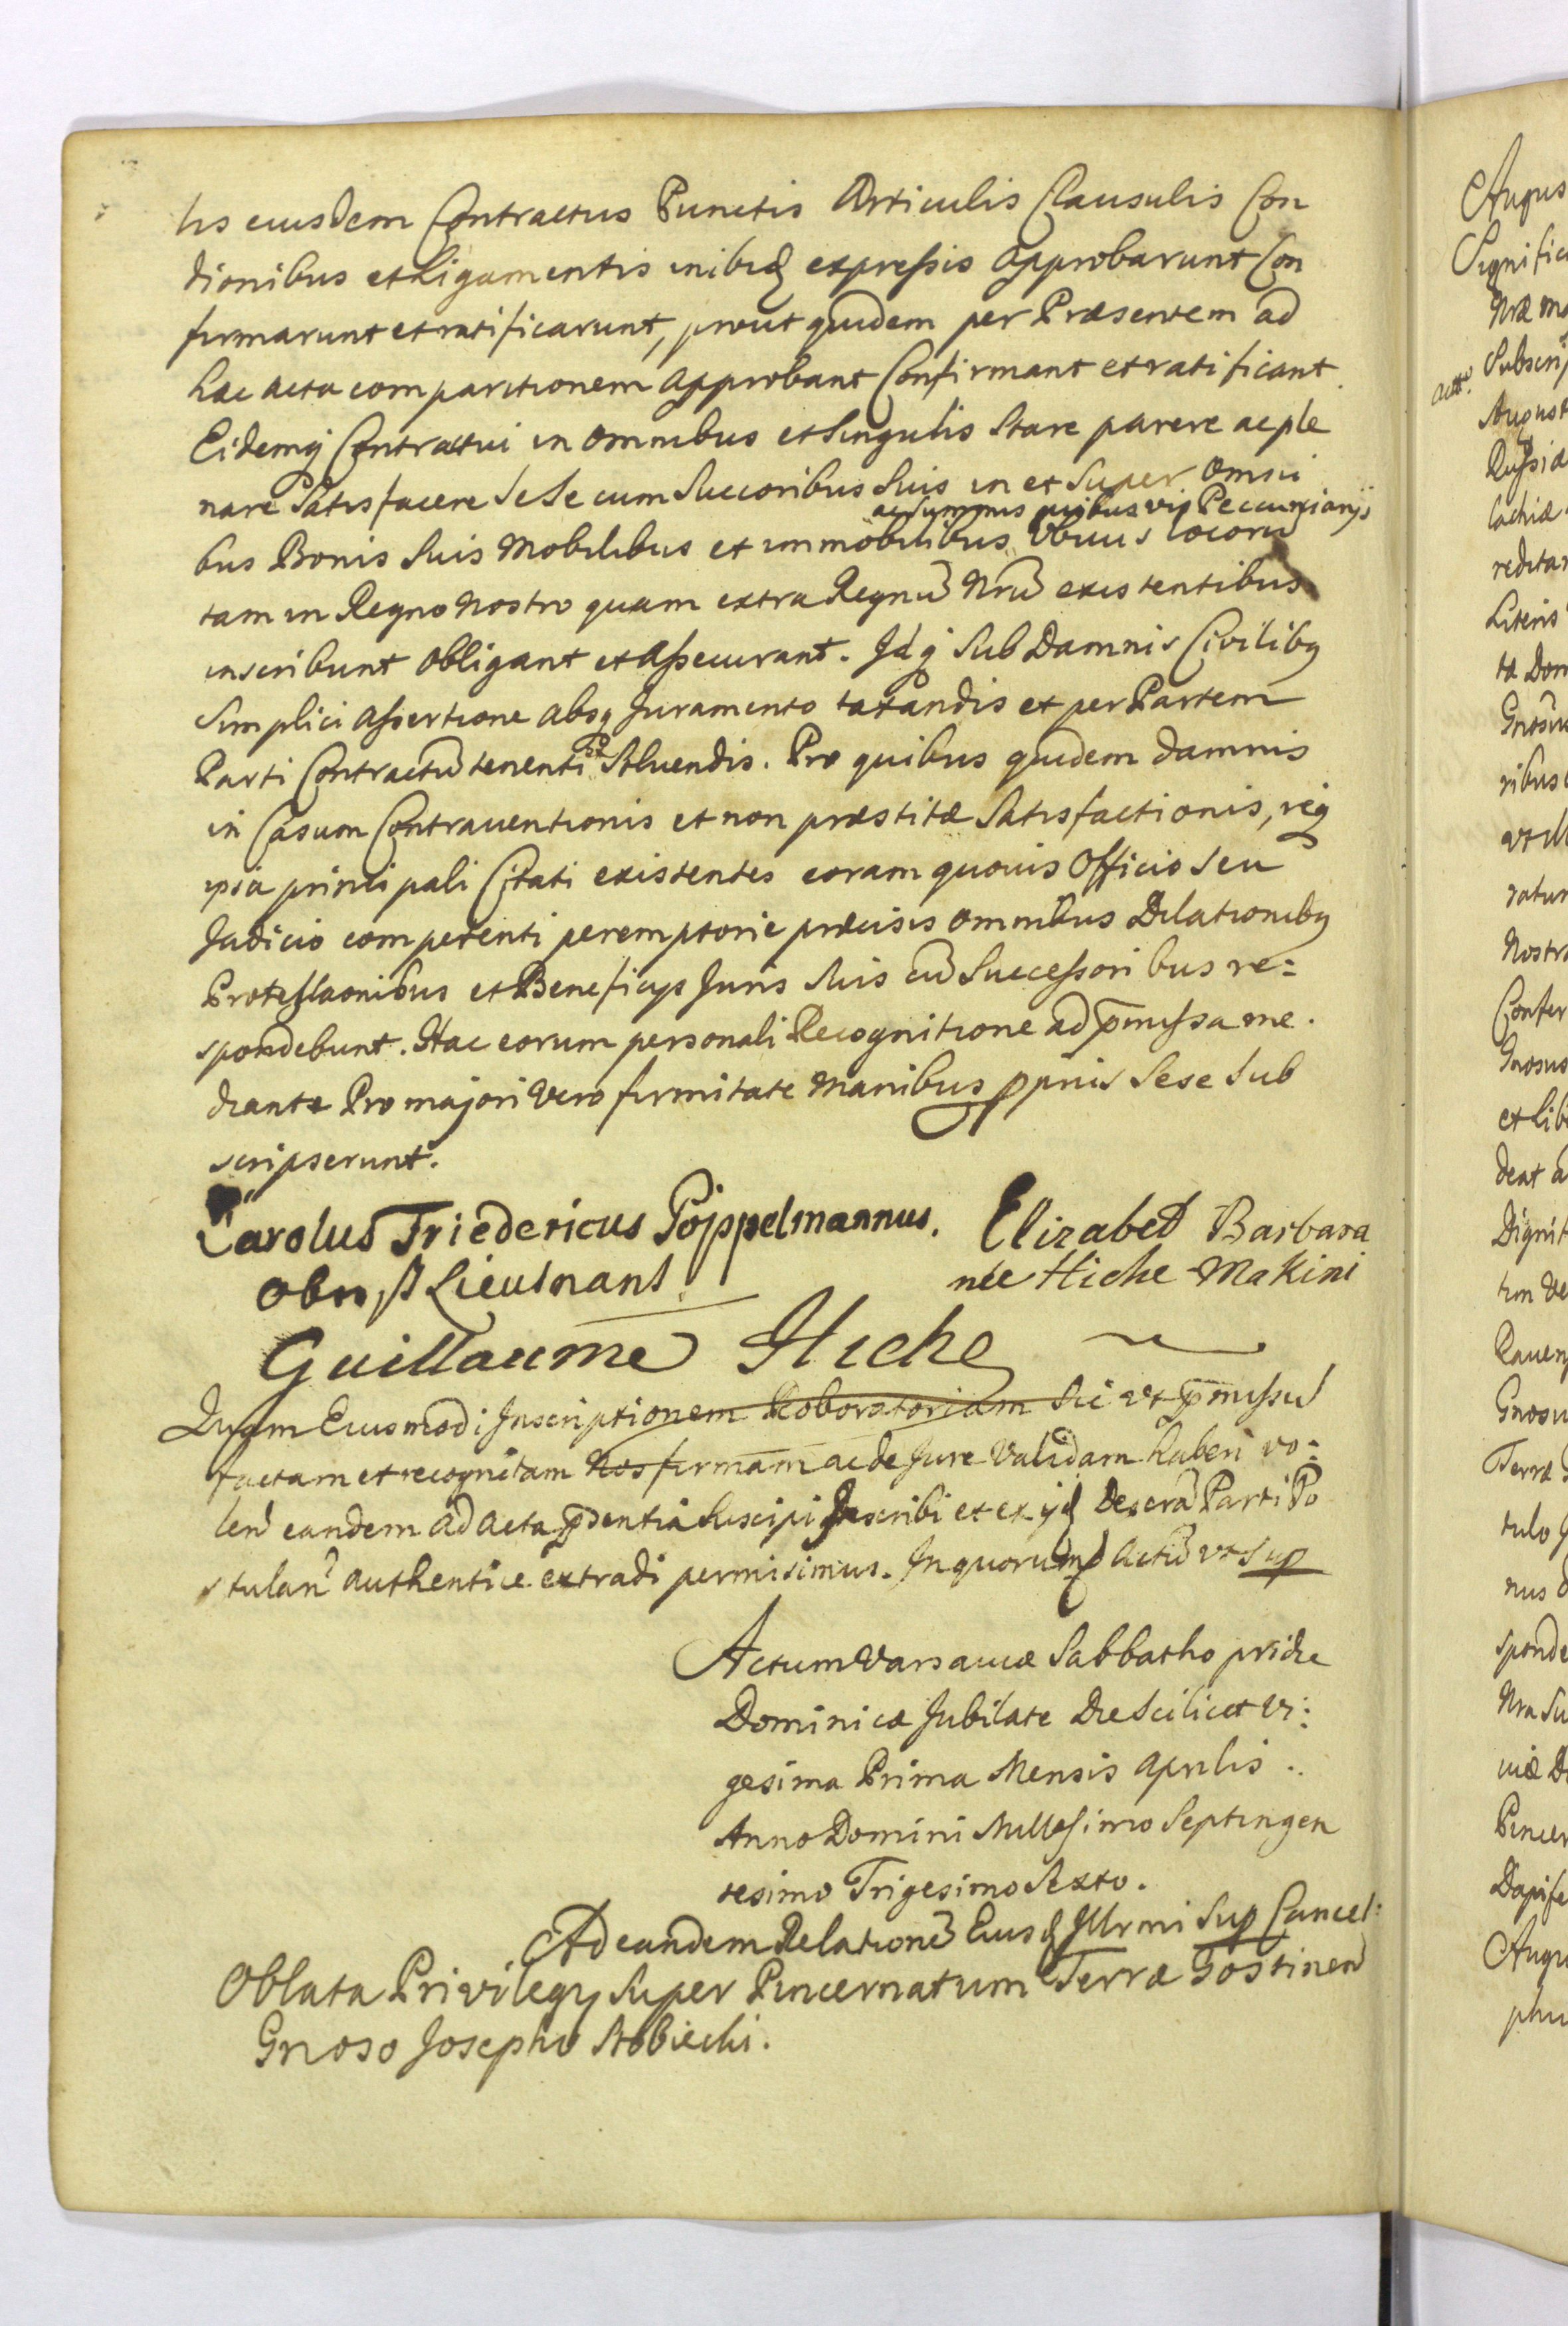 lis eiusdem Contractus Punctis Articulis Clausulis Con
dionibus et Ligamentis inibiq expressis approbarunt Con
firmarunt et ratificarunt, prout quidem per Præsentem ad
hac acta comparitionem approbant Confirmant et ratificant
Eidemq Contractui in omnibus et Singulis Stare parere ac ple
nare Satisfacere Sese cum Succoribus Suis in et Super Omni
ac summis quibusvis Pecuniarijs
bus Bonis Suis Mobilibus et immobilibus Ubivis locorũ
tam in Regno Nostro quam extra Regnũ Nrũ existentibus
inscribunt Obligant et assecurant. Idq Sub Damnis Civilibq
Simplici assertione absq Juramento taxandis et per Partem
Parti Contractũ tenenti Solvendis. Pro quibus quidem damnis
in Casum Contrauentionis et non præstitæ Satisfactionis,
principali Citati existentes coram quouis Officio seu
Judicio competenti peremptorie præcisis omnibus Dilationibq
et Beneficijs Juris Suis cũ Successoribus re:
spondebunt. Hac eorum personali Recognitione ad pmissa me.
diante Pro majori Vero firmitate Manibus ppriis Sese Sub
scripserunt.
Carolus Friedericus Pöppelmannus. Elizabet Barbara
Obrist Lieutnant née Hiche Makini
Guillaume Hiche
Quam Eiusmodi Inscriptionem Roboratoriam Sic ut pmissũ
factam et recognitam Nos firmam ac de Jure Validam haberi vo:
len eandem ad acta pdentia Suscipi Inscribi et ex ijs Parti Po
stulan authentice extradi permisimus. In quorum Actũ ut Sup
Actum Varsauiæ Sabbatho pridie
Dominicæ Jubilate Die Scilicet Vi:
gesima Prima Mensis Aprilis ..
Anno Domini Millesimo Septingen
tesimo Trigesimo Sexto.
Ad eandem Relationẽ Eiusd Illrmi Sup Cancel:
Oblata Privilegij Super Pincernatum Terræ Gostinen
Gnoso Josepho
Augus
Signific
Nræ Ma
Subscrip
August
Russiæ
reditar
Literis
ribus
ratur
Nostra
Confer
Gnosus
et lib
deat a
Dignit
Gnosu
Terræ
tulo
nus
sponde
Nra Su
Pincer
Dapife
Augu